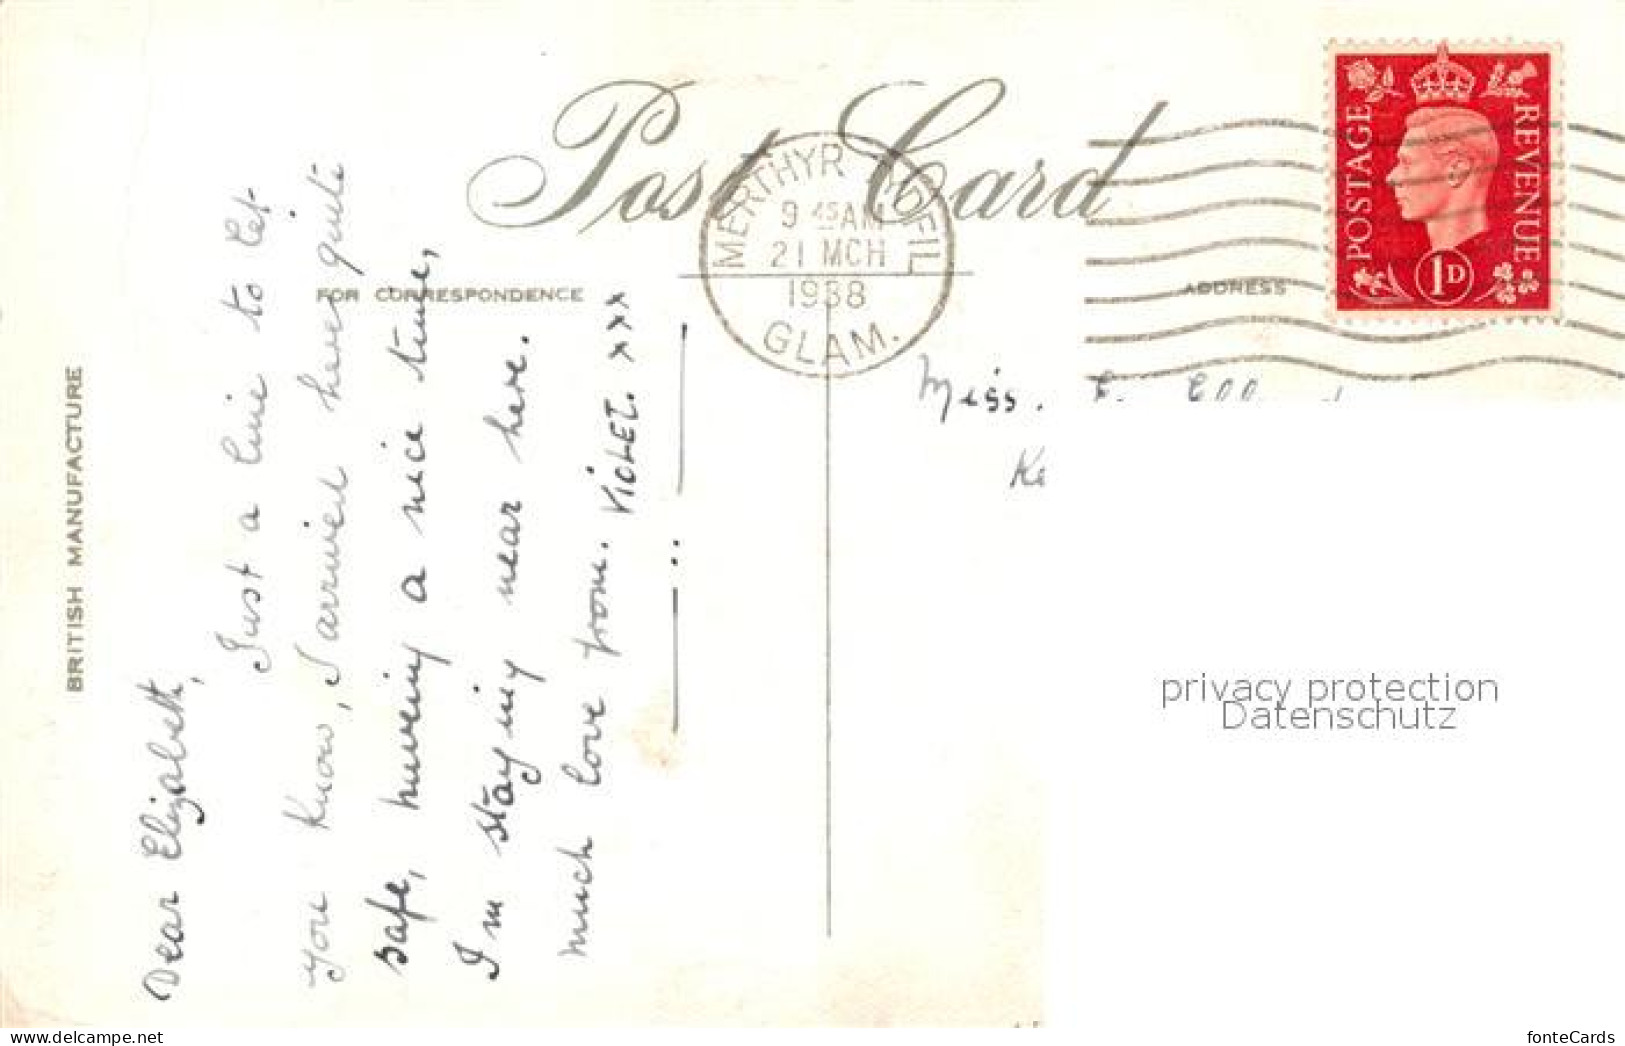 Post Card
FOR CORRESPONDENCE
ADDRESS
BRITISH MANUFACTURE
MERTHYR TYDFIL
9 45 AM
21 MCH
1938
GLAM.
POSTAGE
REVENUE
1D
Dear Elizabeth,
Just a line to let
you know, I arrived here quite
safe, having a nice time,
I'm staying near here.
much love from. VIOLET. xxx
Miss. E.
privacy protection
Datenschutz
https://www.delcampe.net
fonteCards